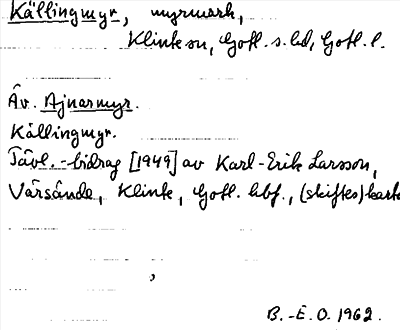 Källingmyr, myrmark,
Klinte sn, Gotl. s. hd, Gotl. l.
Äv. Ajnarmyr.
Källingmyr.
Tävl.-bidrag [1949] av Karl-Erik Larsson,
Värsände, Klinte, Gotl. hbf., (skiftes)karta
B.-E.O. 1962.